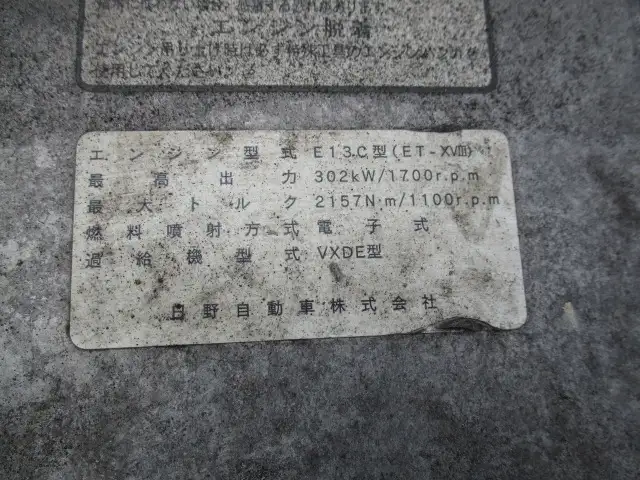 エンジン脱着
エンジン吊り上げ時は必ず特殊工具の
使用してください
エンジン型式 E13C型(ET-XVIII)
最高出力 302kW/1700r.p.m
最大トルク 2157N·m/1100r.p.m
燃料噴射方式 電子式
過給機型式 VXDE型
日野自動車株式会社